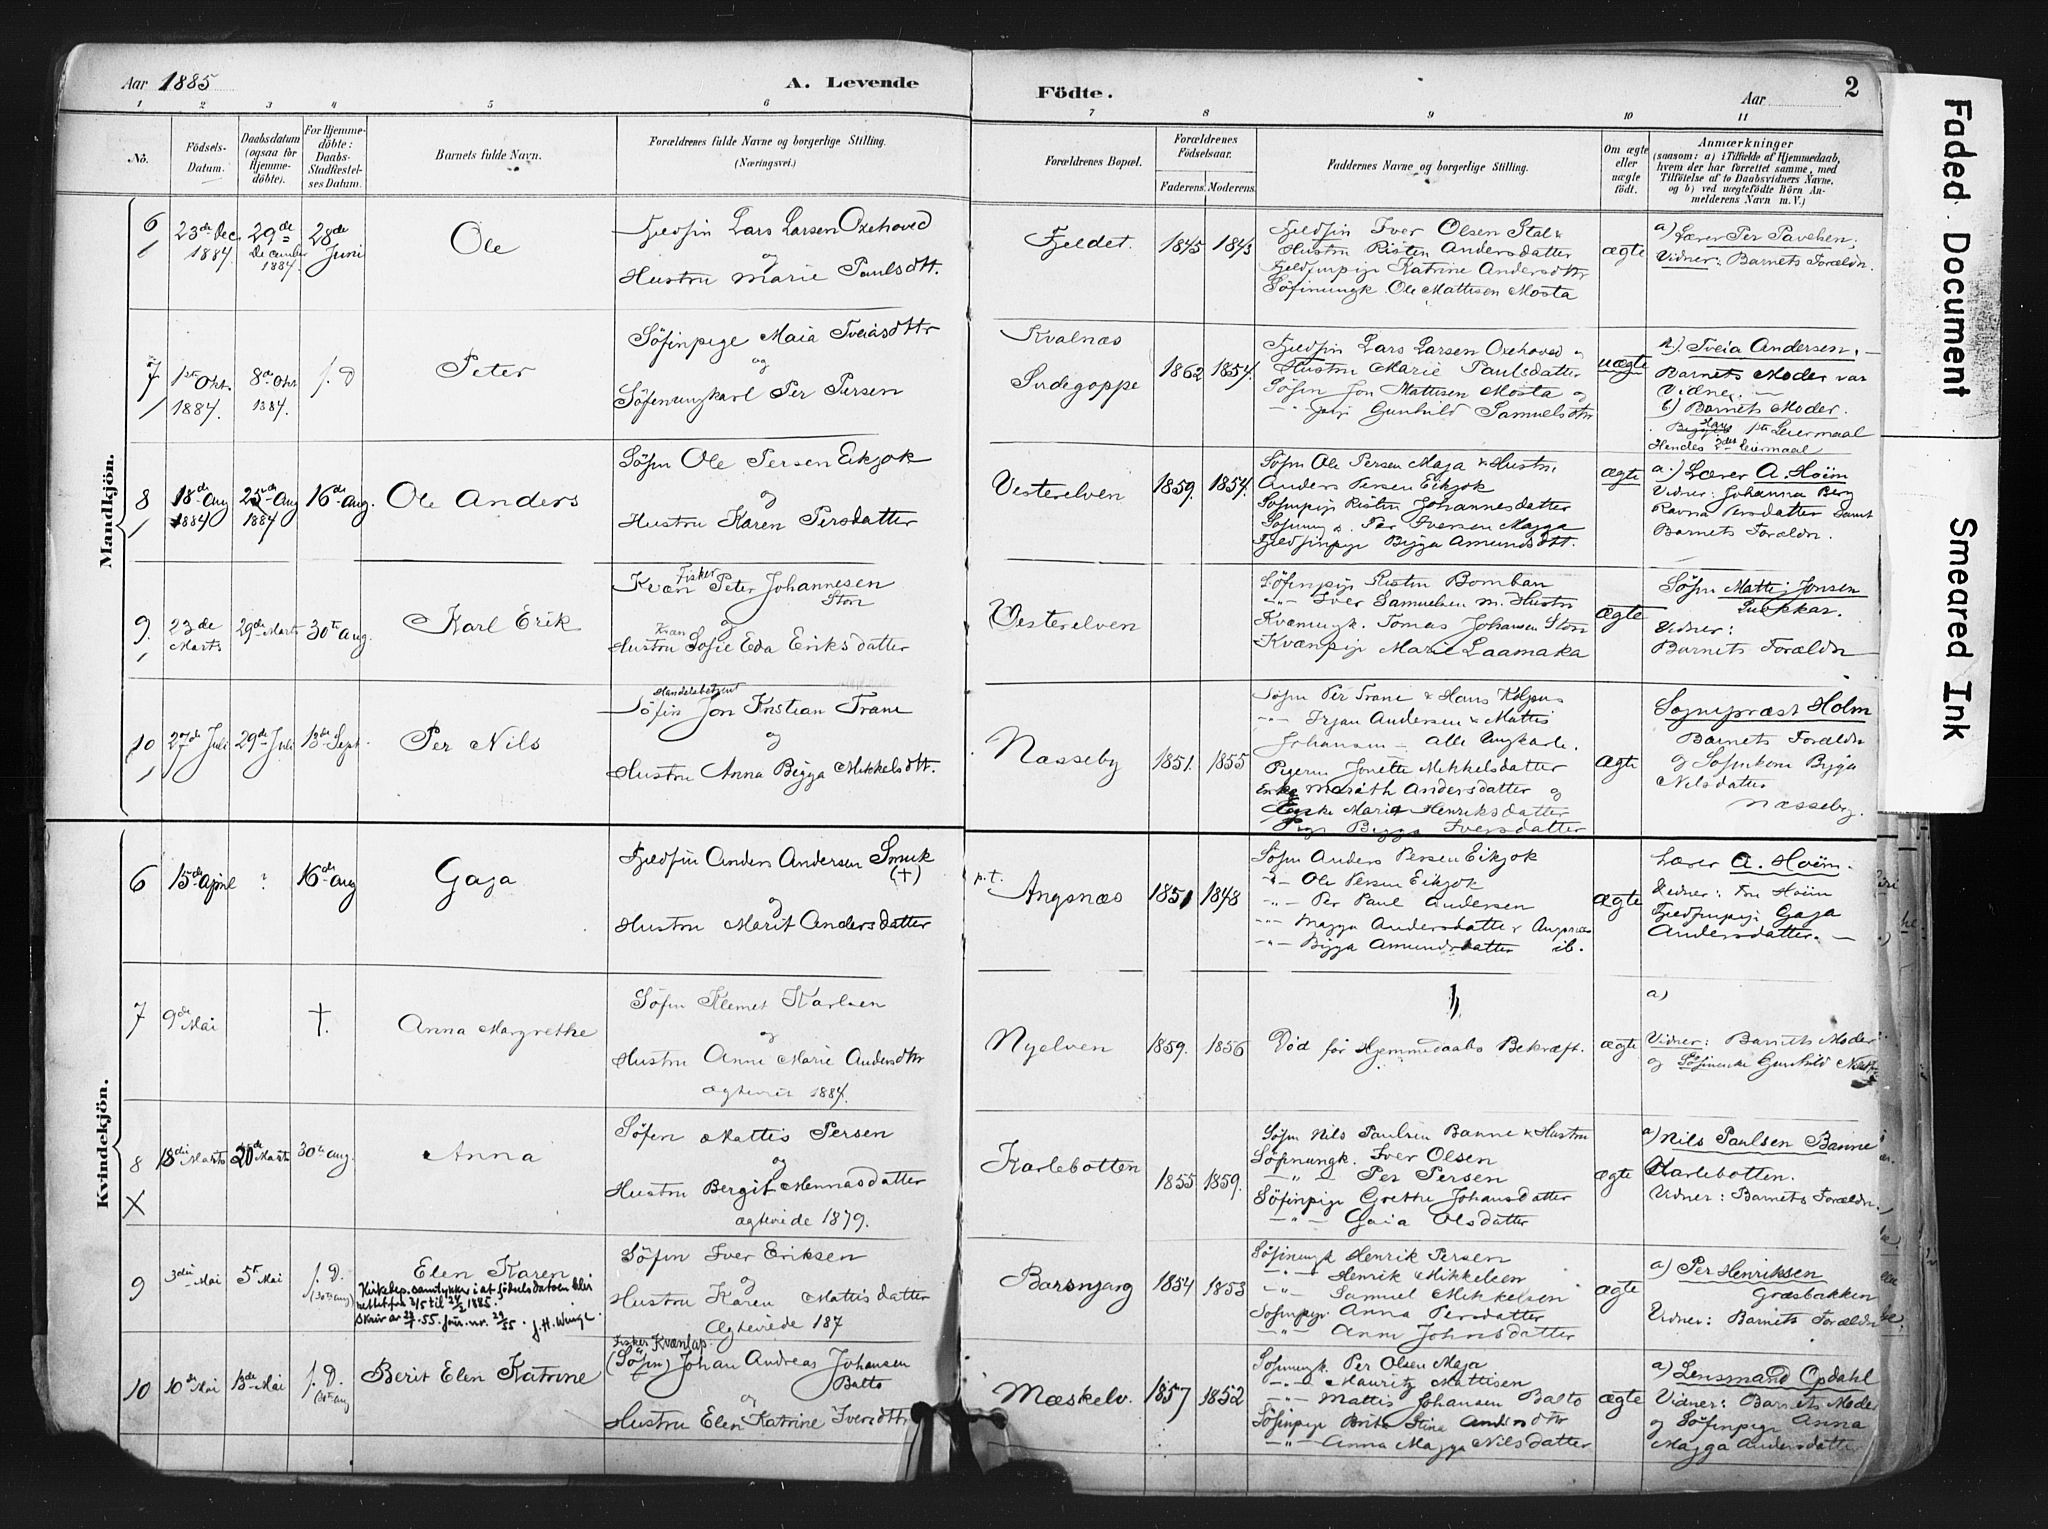 Aar 1885
A. Levende
Födte.
Aar
2
1 2 3 4 5 6 7 8 9 10 11
No.
Födsels-Datum.
Daabsdatum (ogsaa for Hjemme-döbte).
For Hjemme-döbte: Daabs-Stadfæstel-ses Datum.
Barnets fulde Navn.
Forældrenes fulde Navne og borgerlige Stilling.
(Næringsvei.)
Forældrenes Bopæl.
Forældrenes Födselsaar.
Faderens. Moderens.
Faddernes Navne og borgerlige Stilling.
Om ægte eller uægte født.
Anmærkninger
(saasom: a) i Tilfælde af Hjemmedaab,
hvem der har forrettet samme, med
Tilföielse af to Daabsvidners Navne,
og b) ved uægtefödte Börn An-
melderens Navn m. V.)
Mandkjön.
6
23de Dec. 1884
29de December 1884.
28de Juni
Ole
Fjeldfin Lars Larsen Oxehoved
og
Hustru Marie Paulsdtt.
Fjeldet.
1845
1843
Fjeldfin Iver Olsen Stal &
Hustru Risten Andersdatter
Fjeldfinpige Katrine Andersdtr
Söfinungk. Ole Mattisen Mosta
ægte
a) Lærer Per Pavelsen,
Vidner: Barnets Forældre.
7
1ste Okt. 1884.
8de Okt 1884.
f. D
Peter
Söfinpige Maia Sveiasdttr
og
Söfinungkarl Per Persen
Kvalnæs
Sudegoppe
1862
1854.
Fjeldfin Lars Larsen Oxehoved og
Hustru Marie Paulsdatter
Söfin Jon Mattisen Mosta og
-"- pige Gunhild Samuelsdtr
uægte
a). Sveia Andersen. —
Barnets Moder var
Vidne. —
b) Barnets Moder.
Hans 1ste Leiermaal
Hendes 2det Leiermaal
8
18de Aug 1884
25de Aug 1884
16de Aug.
Ole Anders
Söfin Ole Persen Eikjok
og
Hustru Karen Persdatter
Vesterelven
1859.
1854.
Söfin Ole Persen Maja & Hustru.
Anders Persen Eikjok
Söfinpige Ristin Johannesdatter
Söfinung k. Per Iversen Magga
Fjeldfinpige Bigga Amundsdtt.
ægte
a.) Lærer A. Hoëm
Vidner: Johanna Berg
Ravna Persdatter samt
Barnets Forældre.
9.
23de Marts
29de Marts
30te Aug.
Karl Erik
Kvæn Fisker Peter Johannesen
Ston
og
Hustru Kvæn Sofie Eda Eriksdatter
Vesterelven
Söfinpige Ristin Bomban
-"- Iver Samuelsen m. Hustru
Kvænungk. Tomas Johansen Ston
Kvænpige Marie Laamaka
ægte
Söfin Mattis Jonsen
Vidner:
Barnets Forældre
10
27de Juli
29de Juli
13de Sept.
Per Nils
Handelsbetjent
Söfin Jon Kristian Trane
og
Hustru Anna Bigga Mikkelsdtt.
Næsseby
1851.
1855
Söfin Per Trane & Hans
-"- Andersen & Mattis
Johansen — Alle Ungkarle.
Pigerne Jonette Mikkelsdatter
Enke Marith Andersdatter og
Enke Marie Henriksdatter
Pige Bigga Iversdatter
ægte
Sognepræst Holm
Barnets Forældre
og Söfinkone Bigga
Nilsdatter
Næsseby.
Kvindekjön.
6
15de April
?
16de Aug
Gaja
Fjeldfin Anders Andersen Smuk
(†)
og
Hustru Marit Andersdatter
p.t. Angsnæs
1851
1848
Söfin Anders Persen Eikjok
-"- Ole Persen Eikjok
-"- Per Paul Andersen
-"- Magga Andersdatter Angsnæs
-"- Bigga Amundsdatter ib.
ægte
Lærer A. Hoëm.
Vidner: Fru Hoëm
Fjeldfinpige Gaja
Andersdatter. —
7
9de Mai
†.
Anna Margrethe
Söfin Klemet Karlsen
og
Hustru Anne Marie Andersdtr
ægteviet 1884.
Nyelven
1859.
1856
Død før Hjemmedaabs Bekræft.
ægte
a)
Vidner: Barnets Moder
og Söfinenke Gunhild
8
X
18de Marts
20de Marts
30te Aug.
Anna
Söfin Mattis Persen
og
Hustru Bergit Mennasdatter
ægteviede 1879.
Karlebotten
1855
1859.
Söfin Nils Paulsen Banne & Hustru
Söfinungk. Iver Olsen
-"- Per Persen
Söfinpige Grethe Johansdatter
—"— Gaia Olsdatter
ægte
a) Nils Paulsen Banne
Karlebotten.
Vidner: Barnets Forældre.
9
3die Mai
5te Mai
f. D.
(30te Aug)
Elen Karen
Kirkedep. samtykker i at födselsdatoen blir
rettet fra 3/5 til 24/2 1885.
Skriv av 23/7-55. jour. nr. J.H. Winge.
Söfin Iver Eriksen
og
Hustru Karen Mattisdatter
Ægteviede 187
Barsnjarg
1854
1853
Söfinungk Henrik Persen
-"- Henrik Mikkelsen
-"- Samuel Mikkelsen
Söfinpige Anna Persdatter
-"- Anne Johnsdatter
ægte
a) Per Henriksen
Græsbakken
Vidner: Barnets Forældre
10
10de Mai
13de Mai
f. D.
(30te Aug
Berit Elen Katrine
Fisker Kvænlap.
(Söfin) Johan Andreas Johansen
Balto
og
Hustru Elen Katrine Iversdttr
Mæskelv.
1857
1852
Söfinungk. Per Olsen Maja
-"- Mauritz Mattisen
-"- Mattis Johansen Balto
Söfinpige Brita Stina Andersdtr
-"- Anna Magga Nilsdatter
ægte
a) Lensmand Opdahl
Vidner: Barnets Moder
og Söfinpige Anna
Magga Andersdatter
Faded Document
Smeared Ink